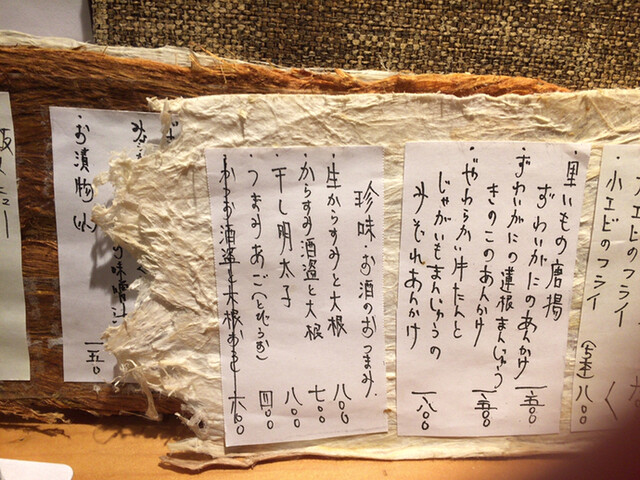 小エビのフライ
小エビのフライ
(5本) 八〇〇
・里いもの唐揚
ずわいがにのあんかけ 一、三〇〇
・ずわいがにの蓮根まんじゅう
きのこのあんかけ 一、五〇〇
・やわらか牛たんと
じゃがいもまんじゅうの
みぞれあんかけ 一、八〇〇
珍味・お酒のおつまみ
・生からすみと大根 八〇〇
からすみ酒盗と大根 七〇〇
・干し明太子 八〇〇
・つまみあご(とびうお) 四〇〇
・かつお酒盗と大根おろし 六〇〇
の味噌汁
・お漬物(小) 一五〇